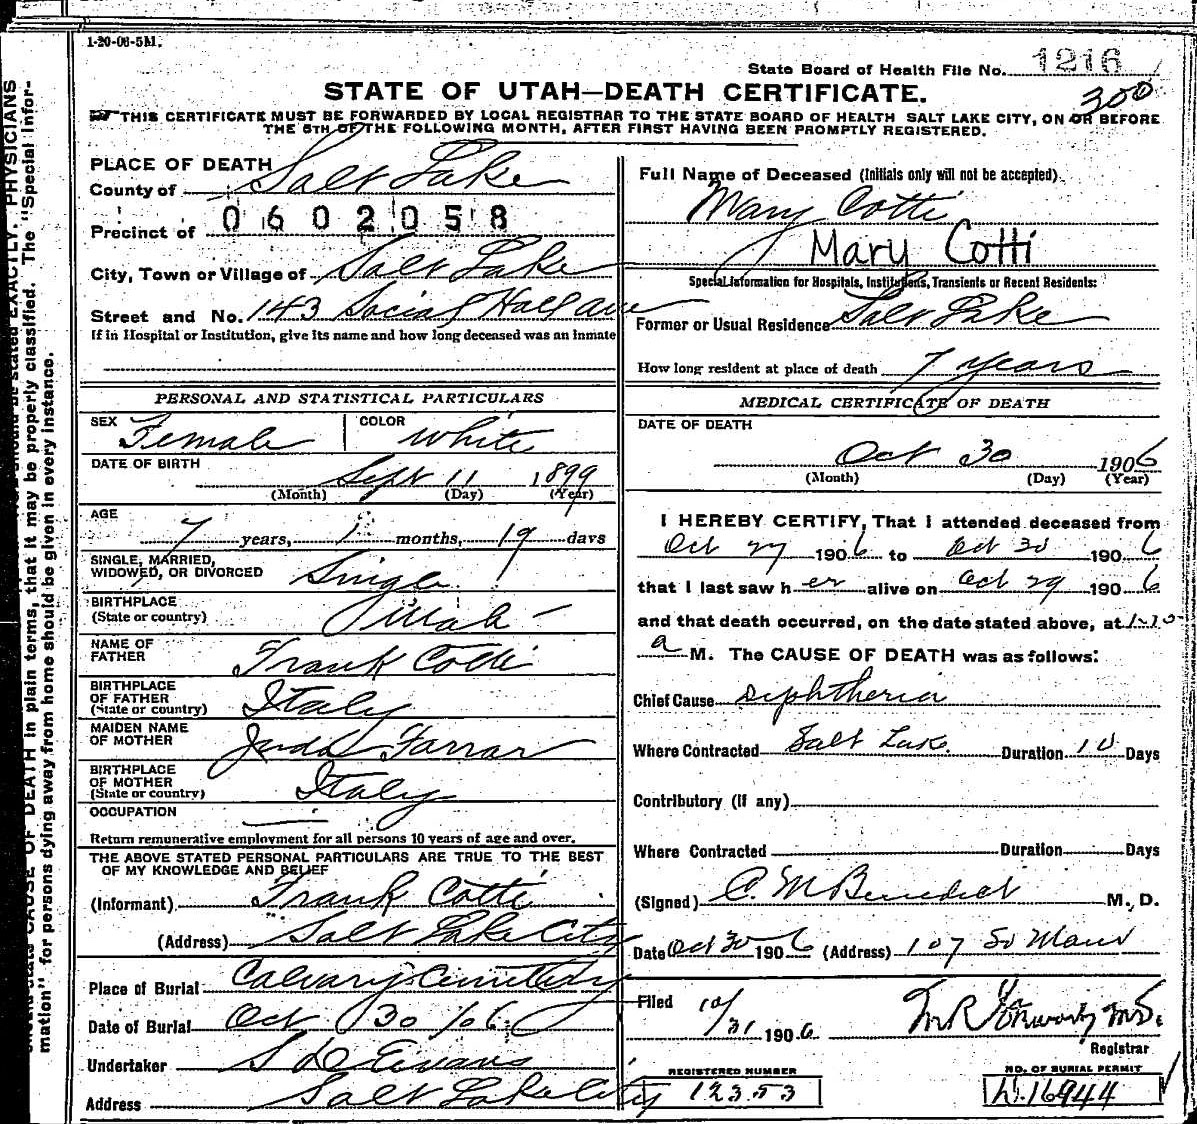 1-20-06-5M.
State Board of Health File No. 1216
STATE OF UTAH—DEATH CERTIFICATE.
300
THIS CERTIFICATE MUST BE FORWARDED BY LOCAL REGISTRAR TO THE STATE BOARD OF HEALTH SALT LAKE CITY, ON OR BEFORE
THE 5TH OF THE FOLLOWING MONTH, AFTER FIRST HAVING BEEN PROMPTLY REGISTERED.
PLACE OF DEATH
County of Salt Lake
Precinct of 0602058
City, Town or Village of Salt Lake
Street and No. 143 Social Hall ave
If in Hospital or Institution, give its name and how long deceased was an inmate
PERSONAL AND STATISTICAL PARTICULARS
SEX Female COLOR White
DATE OF BIRTH Sept 11 1899
(Month) (Day) (Year)
AGE
7 years, 1 months, 19 days
SINGLE, MARRIED,
WIDOWED, OR DIVORCED Single
BIRTHPLACE
(State or country) Utah
NAME OF
FATHER Frank Cotti
BIRTHPLACE
OF FATHER
(State or country) Italy
MAIDEN NAME
OF MOTHER Farrar
BIRTHPLACE
OF MOTHER
(State or country) Italy
OCCUPATION
Return remunerative employment for all persons 10 years of age and over.
THE ABOVE STATED PERSONAL PARTICULARS ARE TRUE TO THE BEST
OF MY KNOWLEDGE AND BELIEF
(Informant) Frank Cotti
(Address) Salt Lake City
Place of Burial Calvary Cemetery
Date of Burial Oct 30/06
Undertaker S D Evans
Address Salt Lake City
Full Name of Deceased (Initials only will not be accepted).
Mary Cotti
Mary Cotti
Special Information for Hospitals, Institutions, Transients or Recent Residents:
Former or Usual Residence Salt Lake
How long resident at place of death 7 years
MEDICAL CERTIFICATE OF DEATH
DATE OF DEATH
Oct 30 1906
(Month) (Day) (Year)
I HEREBY CERTIFY, That I attended deceased from
Oct 27 1906 to Oct 30 1906
that I last saw her alive on Oct 29 1906
and that death occurred, on the date stated above, at
a M. The CAUSE OF DEATH was as follows:
Chief Cause diphtheria
Where Contracted Salt Lake. Duration 10 Days
Contributory (if any)
Where Contracted Duration Days
(Signed) C. M Benedict M. D.
Date Oct 30 1906 (Address) 107 So Main
Filed 10/31 1906
Registrar
REGISTERED NUMBER
12353
NO. OF BURIAL PERMIT
16944
PHYSICIANS
should state CAUSE OF DEATH in plain terms, that it may be properly classified. The "Special Infor-
mation" for persons dying away from home should be given in every instance.